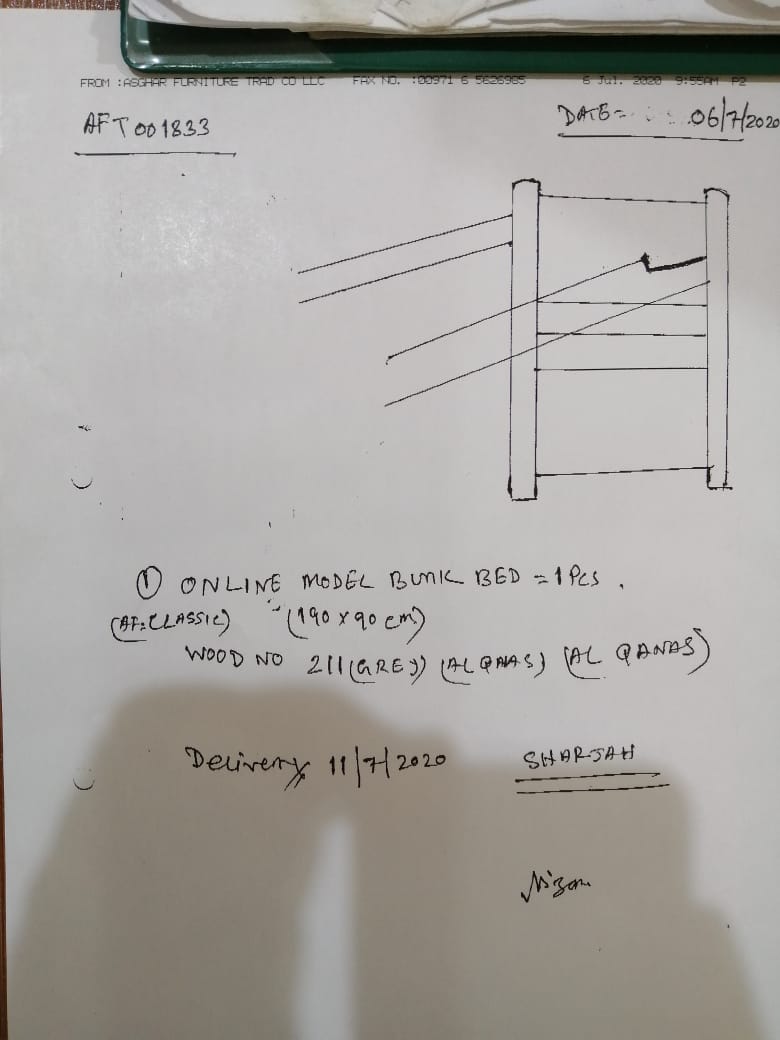 FROM :ASGHAR FURNITURE TRAD CO LLC FAX NO. :00971 6 5626985 6 Jul. 2020 9:55AM P2
AFT 001833 DATE= 06/7/2020
① ONLINE MODEL BUNK BED = 1 Pcs.
(AF:CLASSIC) (190 x 90 cm)
WOOD NO 211 (GREY) (AL QANAS) (AL QANAS)
Delivery 11/7/2020 SHARJAH
Nizam